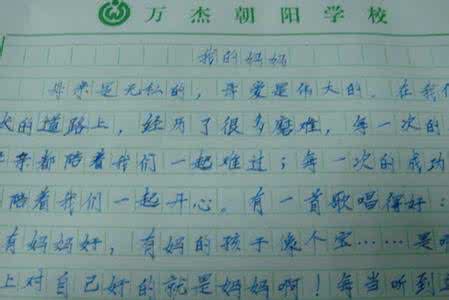 万杰朝阳学校
我的妈妈
母亲是无私的，母爱是伟大的。在我们
的道路上，经历了很多磨难，每一次的
都陪着我们一起难过；每一次的成功
陪着我们一起开心。有一首歌唱得好：
有妈妈好，有妈的孩子像个宝……是
上对自己好的就是妈妈啊！每当听到